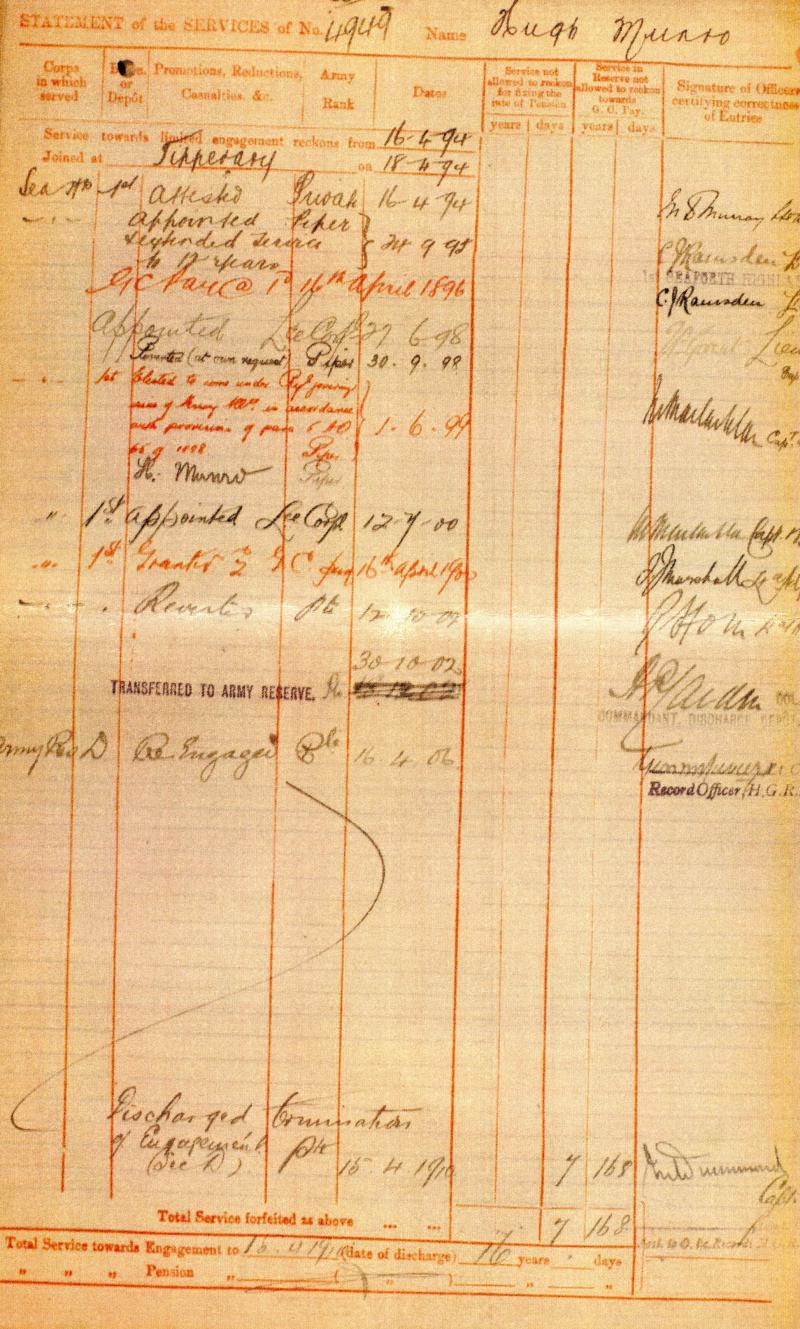 STATEMENT of the SERVICES of No. 4949 Name Hugh Munro
Corps in which served
or Depôt
Promotions, Reductions, Casualties, &c.
Army Rank
Dates
Service not allowed to reckon for fixing the rate of Pension
years days
Service in Reserve not allowed to reckon towards G. C. Pay.
years days
Signature of Officers certifying correctness of Entries
Service towards limited engagement reckons from 16-4-94
Joined at Tipperary on 18-4-94
Sea Hrs 1st Attested Private 16-4-94
Appointed Piper
extended service 24 9 95
to 12 years
C J Ramsden
1st SEAFORTH HIGHLA
G C Pay @ 1d 16th April 1896
C. J Ramsden
Appointed Lce Corpl 27 6-98
Lieu
Reverted (at own request Piper 30. 9. 98
1st Elected to come under
in accordance
with provisions of para
of 1898 1. 6. 99
Capt
H. Munro Piper
" 1st Appointed Lce Corpl 12-7-00
Capt
" 1st Granted 2d G C Pay 16th April
Marshall
Reverted Pte 12 10 02
30 10 02
TRANSFERRED TO ARMY RESERVE. Pte
COMMANDANT, DISCHARGE DEPOT
Army Res D Re-Engaged Pte 16 4 06
Record Officer, H.G.R.
Discharged Termination
of Engagement Pte
(Sec D) 15 4 1910 7 168
Drummond
Capt.
Total Service forfeited as above ... ... 7 168
Total Service towards Engagement to 15. 4 1910 (date of discharge) 16 years . days
" " " Pension " ( " ) " "